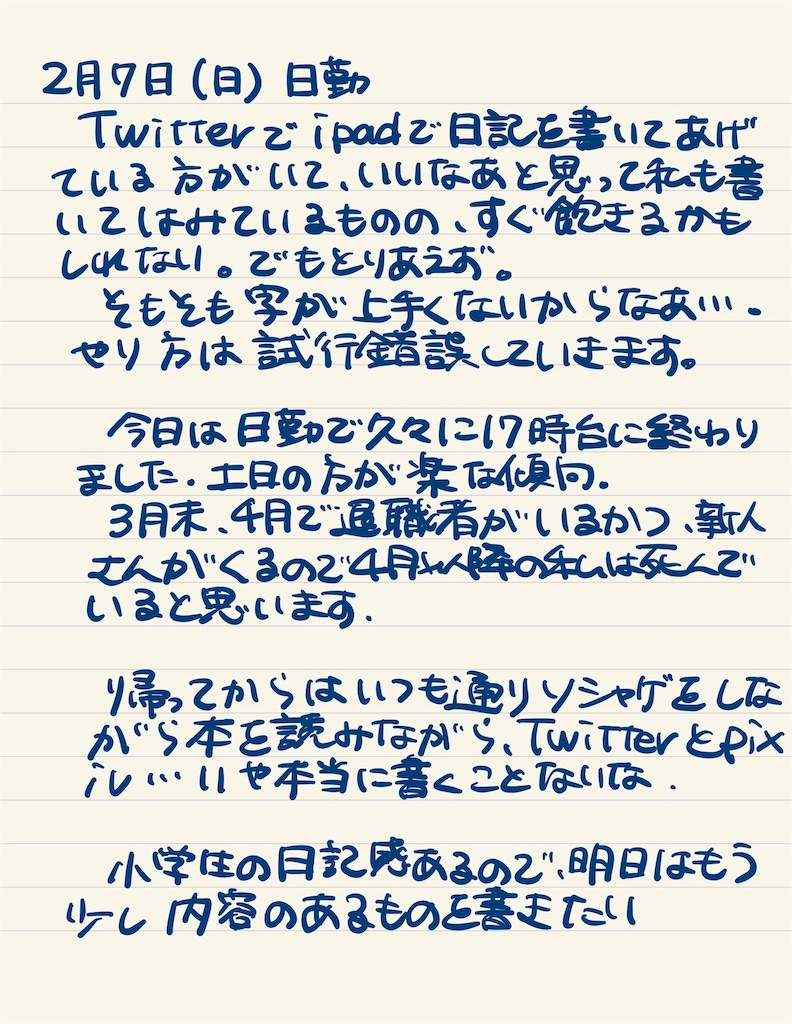 2月7日(日) 日勤
Twitterでipadで日記を書いてあげ
ている方がいて、いいなあと思って私も書
いてはみているものの、すぐ飽きるかも
しれない。でもとりあえず。
そもそも字が上手くないからなあ….
やり方は試行錯誤していきます。
今日は日勤で久々に17時台に終わり
ました.土日の方が楽な傾向.
3月末、4月で退職者がいるかつ、新人
さんがくるので4月以降の私は死んで
いると思います.
帰ってからはいつも通りソシャゲをしな
がら本を読みながら、Twitterとpix
iv…いや本当に書くことないな.
小学生の日記感あるので、明日はもう
少し内容のあるものを書きたい